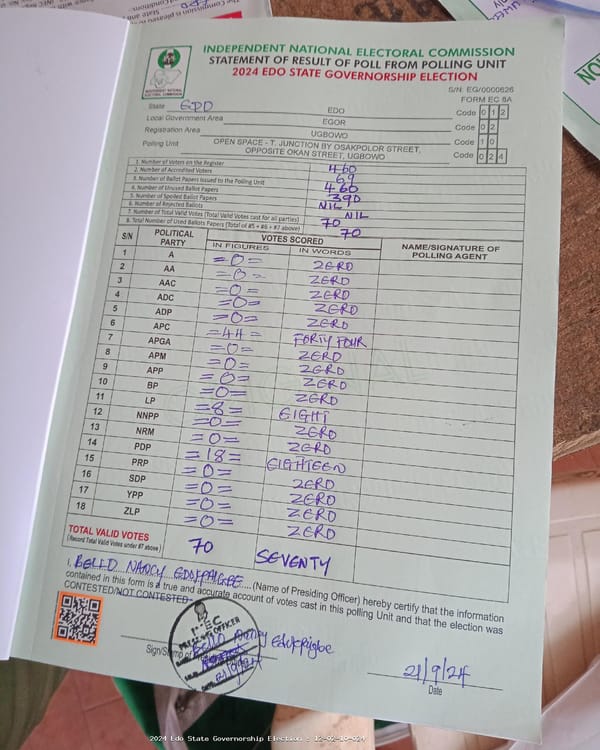 INDEPENDENT NATIONAL ELECTORAL COMMISSION
STATEMENT OF RESULT OF POLL FROM POLLING UNIT
2024 EDO STATE GOVERNORSHIP ELECTION
INDEPENDENT NATIONAL ELECTORAL COMMISSION
S/N: EG/0000626
FORM EC 8A
State EDO EDO Code 0 1 2
Local Government Area EGOR Code 0 2
Registration Area UGBOWO Code 1 0
Polling Unit OPEN SPACE - T. JUNCTION BY OSAKPOLOR STREET, OPPOSITE OKAN STREET, UGBOWO Code 0 2 4
1. Number of Voters on the Register 460
2. Number of Accredited Voters
3. Number of Ballot Papers Issued to the Polling Unit 460
4. Number of Unused Ballot Papers 390
5. Number of Spoiled Ballot Papers NIL
6. Number of Rejected Ballots NIL
7. Number of Total Valid Votes (Total Valid Votes cast for all parties) 70
8. Total Number of Used Ballots Papers (Total of #5 + #6 + #7 above) 70
S/N POLITICAL PARTY VOTES SCORED NAME/SIGNATURE OF POLLING AGENT
IN FIGURES IN WORDS
1 A =0= ZERO
2 AA =0= ZERO
3 AAC =0= ZERO
4 ADC =0= ZERO
5 ADP =0= ZERO
6 APC =44= FORTY FOUR
7 APGA =0= ZERO
8 APM =0= ZERO
9 APP =0= ZERO
10 BP =0= ZERO
11 LP =8= EIGHT
12 NNPP =0= ZERO
13 NRM =0= ZERO
14 PDP =18= EIGHTEEN
15 PRP =0= ZERO
16 SDP =0= ZERO
17 YPP =0= ZERO
18 ZLP =0= ZERO
TOTAL VALID VOTES 70 SEVENTY
(Record Total Valid Votes under #7 above)
I, BELLO NANCY EDUKPAIGBE (Name of Presiding Officer) hereby certify that the information
contained in this form is a true and accurate account of votes cast in this polling Unit and that the election was
CONTESTED/NOT CONTESTED
INEC
PRESIDING OFFICER
Bello Nancy Edukpaigbe
21/9/24
Sign/Stamp of
21/9/24
Date
2024 Edo State Governorship Election